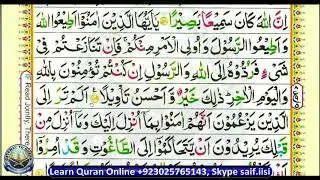 اِنَّ اللّٰهَ كَانَ سَمِيْعًۢا بَصِيْرًا يٰۤاَيُّهَا الَّذِيْنَ اٰمَنُوْۤا اَطِيْعُوا اللّٰهَ
وَاَطِيْعُوا الرَّسُوْلَ وَاُولِي الْاَمْرِ مِنْكُمْ فَاِنْ تَنَازَعْتُمْ فِيْ
شَيْءٍ فَرُدُّوْهُ اِلَى اللّٰهِ وَالرَّسُوْلِ اِنْ كُنْتُمْ تُؤْمِنُوْنَ بِاللّٰهِ
وَالْيَوْمِ الْاٰخِرِ ذٰلِكَ خَيْرٌ وَّاَحْسَنُ تَاْوِيْلًا اَلَمْ تَرَ اِلَى
الَّذِيْنَ يَزْعُمُوْنَ اَنَّهُمْ اٰمَنُوْا بِمَاۤ اُنْزِلَ اِلَيْكَ وَمَاۤ اُنْزِلَ مِنْ
قَبْلِكَ يُرِيْدُوْنَ اَنْ يَّتَحَاكَمُوْۤا اِلَى الطَّاغُوْتِ وَقَدْ اُمِرُوْۤا
Learn Quran Online +923025765143, Skype saif.iisi